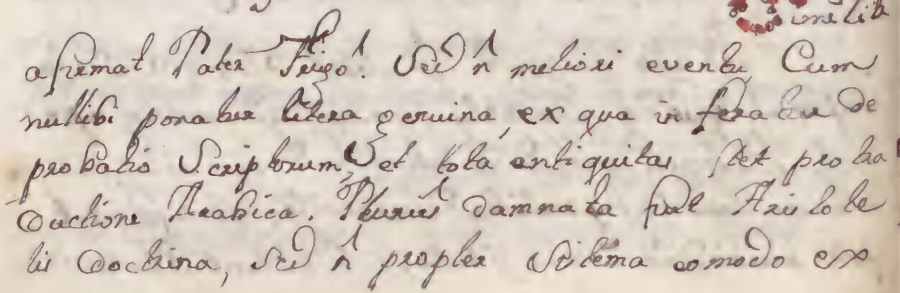 afirmat Pater Frigo. Sed ñ meliori eventu, Cum
nullibi ponatur litera genuina, ex qua inferatur de
probatio Scriptorum, et tota antiquitas stet pro tra
ductione Arabica. Pluries damnata fuit Aristote
lis doctrina, sed ñ propter Sistema eo modo ex